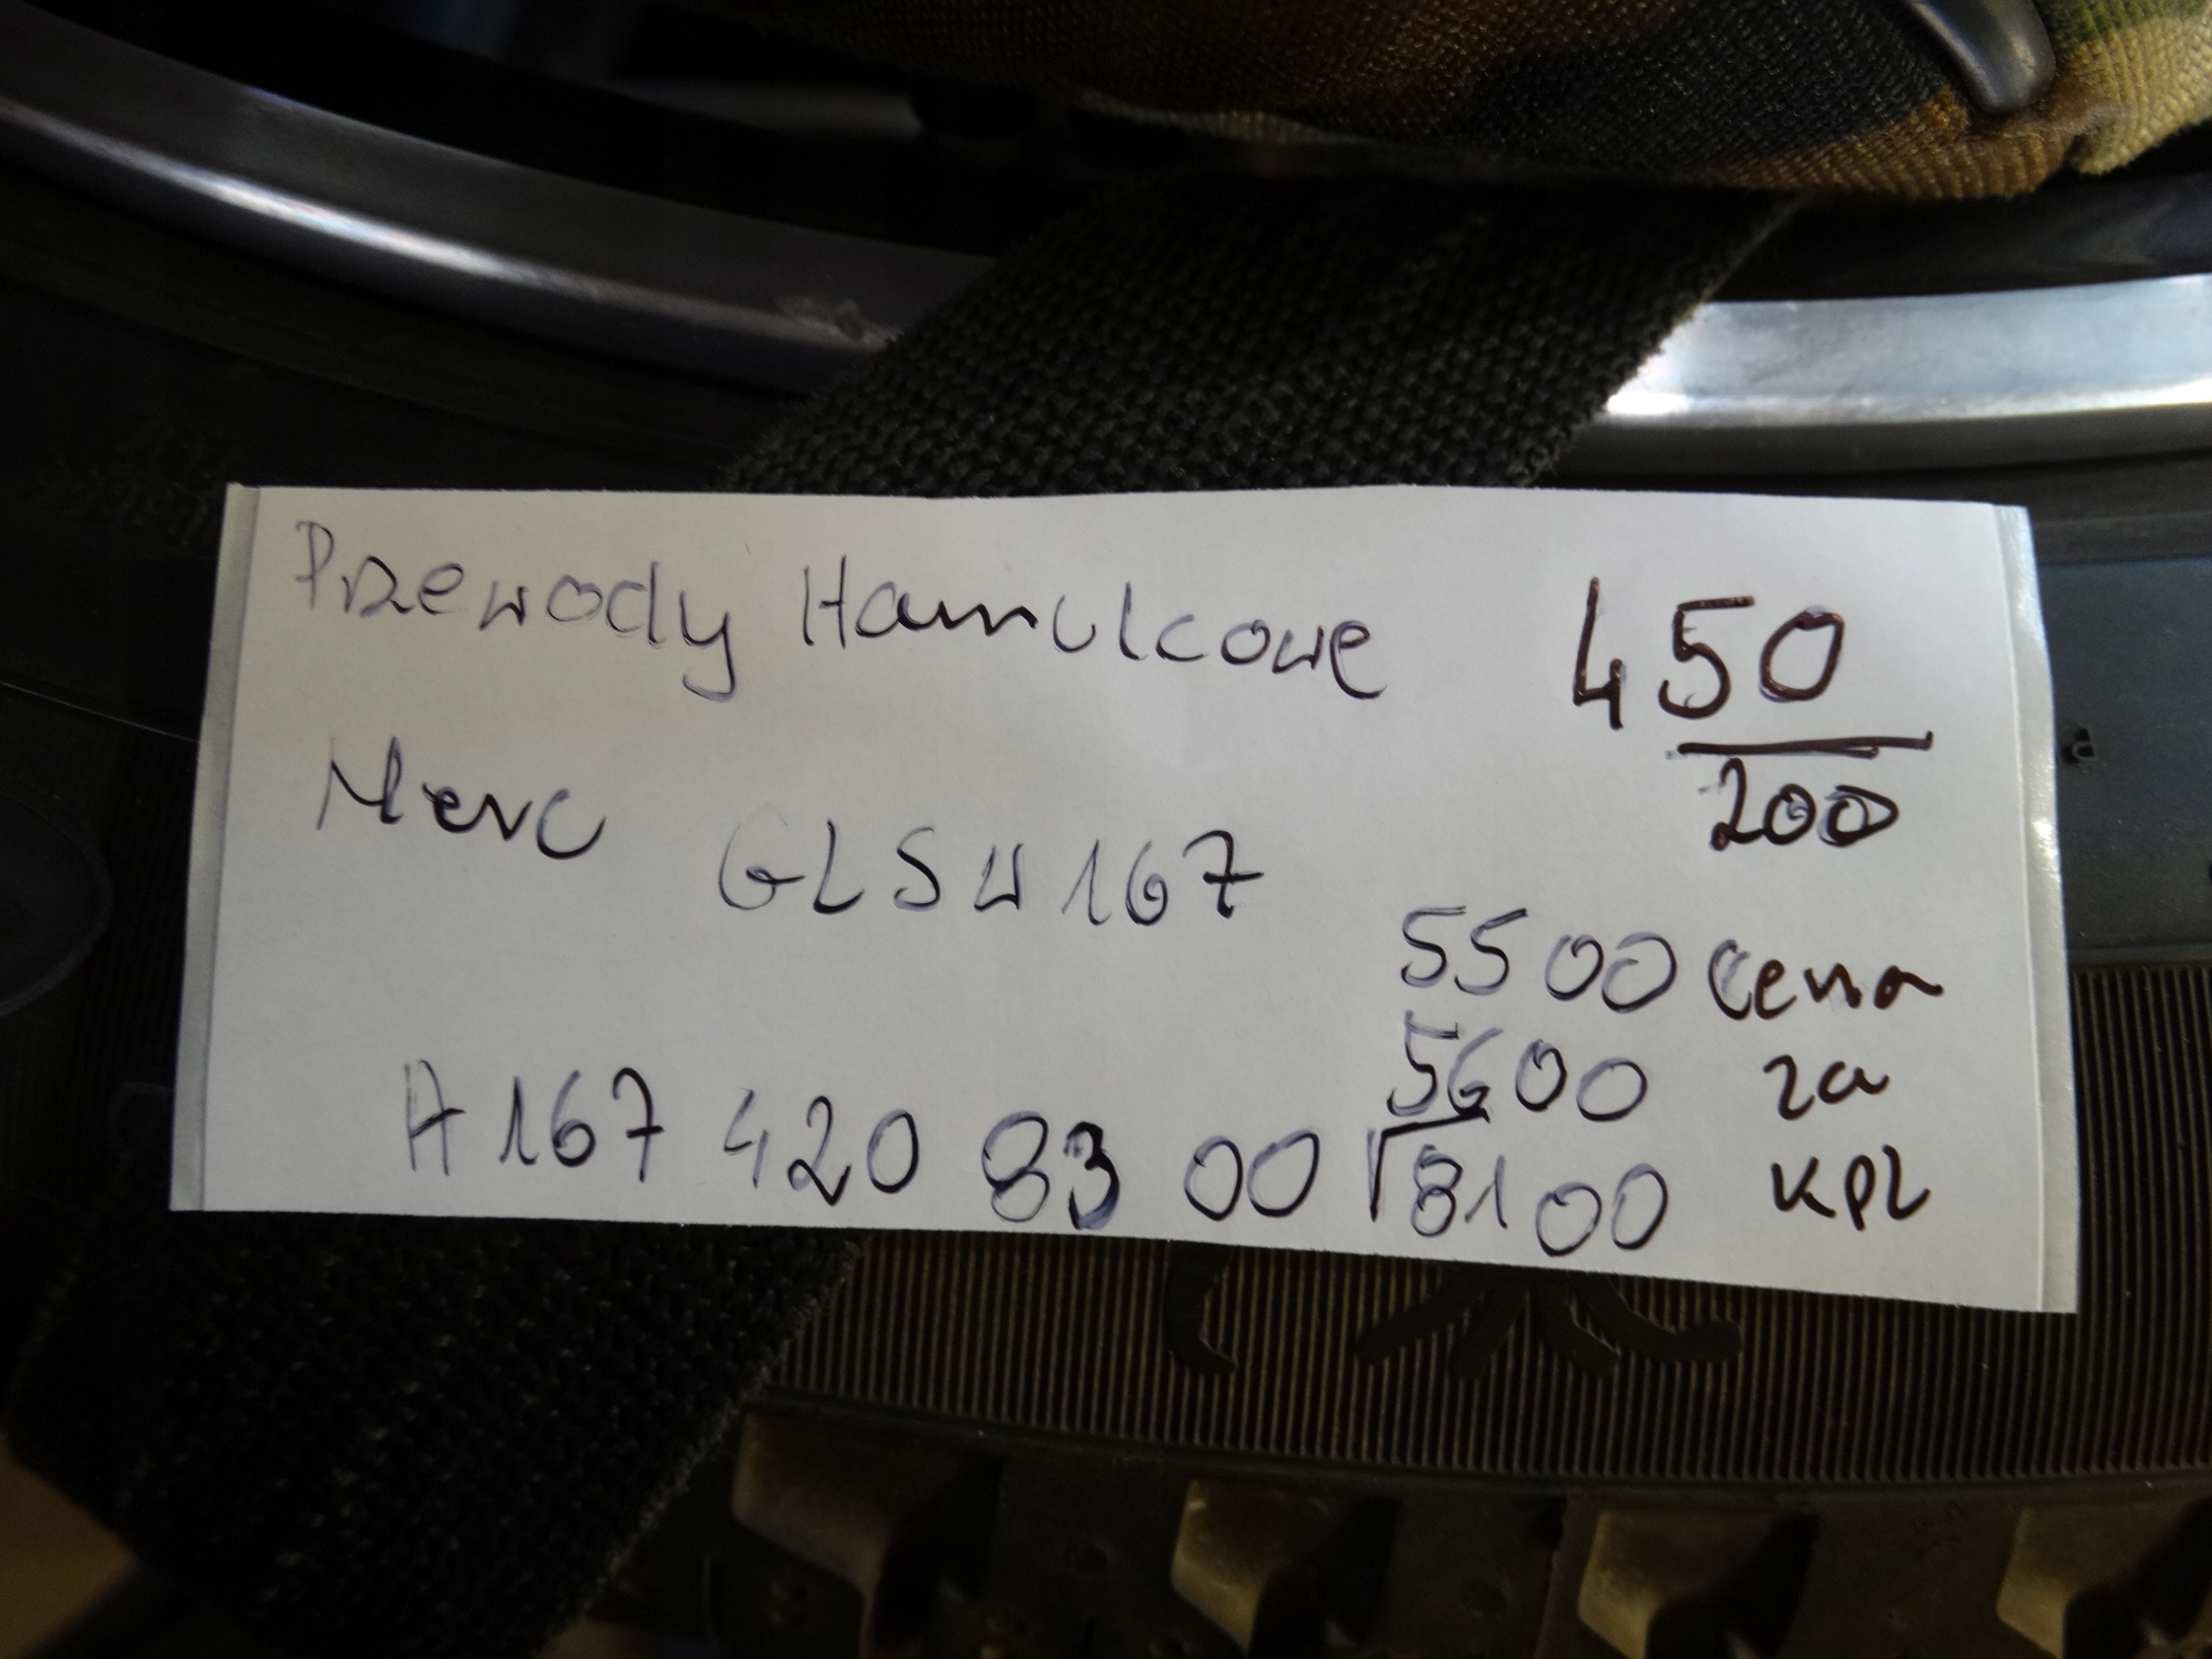 Przewody Hamulcowe 450
200
Merc GLS W167
5500 cena
5600 za
A 167 420 83 00 8100 kpl